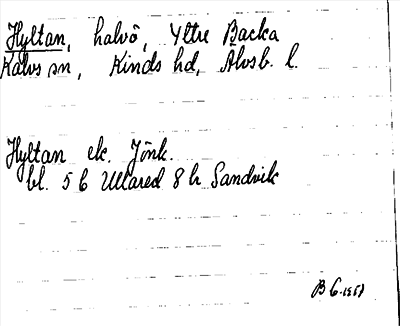 Hyltan, halvö, Yttre Backa
Kalvs sn, Kinds hd, Älvsb. l.
Hyltan ek. Jönk.
bl. 5 6 Ullared 8 h Sandvik
B G. 1951